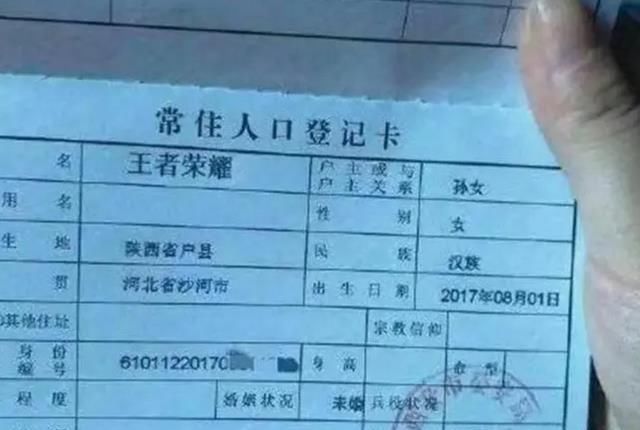 常住人口登记卡
名 王者荣耀 户主或与户主关系 孙女
用名 性别 女
生地 陕西省户县 民族 汉族
贯 河北省沙河市 出生日期 2017年08月01日
其他住址 宗教信仰
身份编号 61011220170 身高 血型
程度 婚姻状况 未婚 兵役状况